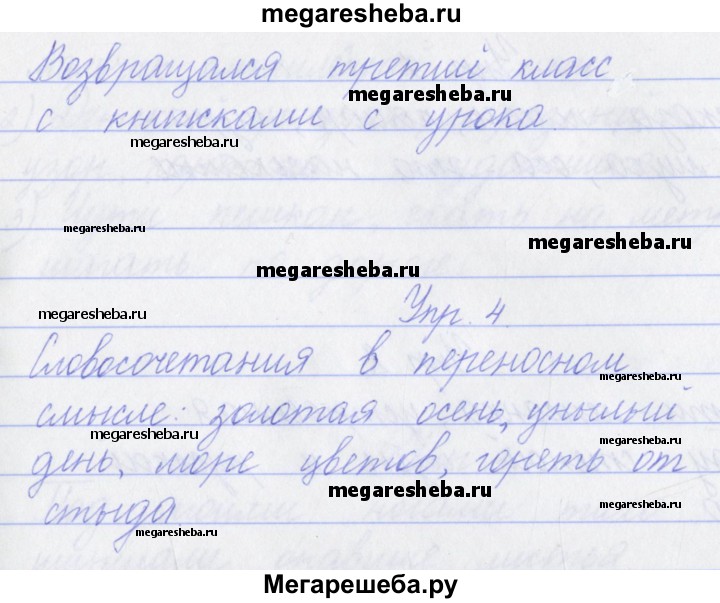 megaresheba.ru
Возвращался третий класс
megaresheba.ru
с книжками с урока
megaresheba.ru
megaresheba.ru
megaresheba.ru
megaresheba.ru
megaresheba.ru
Упр. 4
Словосочетания в переносном
megaresheba.ru
смысле: золотая осень, унылый
megaresheba.ru
megaresheba.ru
день, море цветов, гореть от
megaresheba.ru
стыда
megaresheba.ru
Мегарешеба.ру